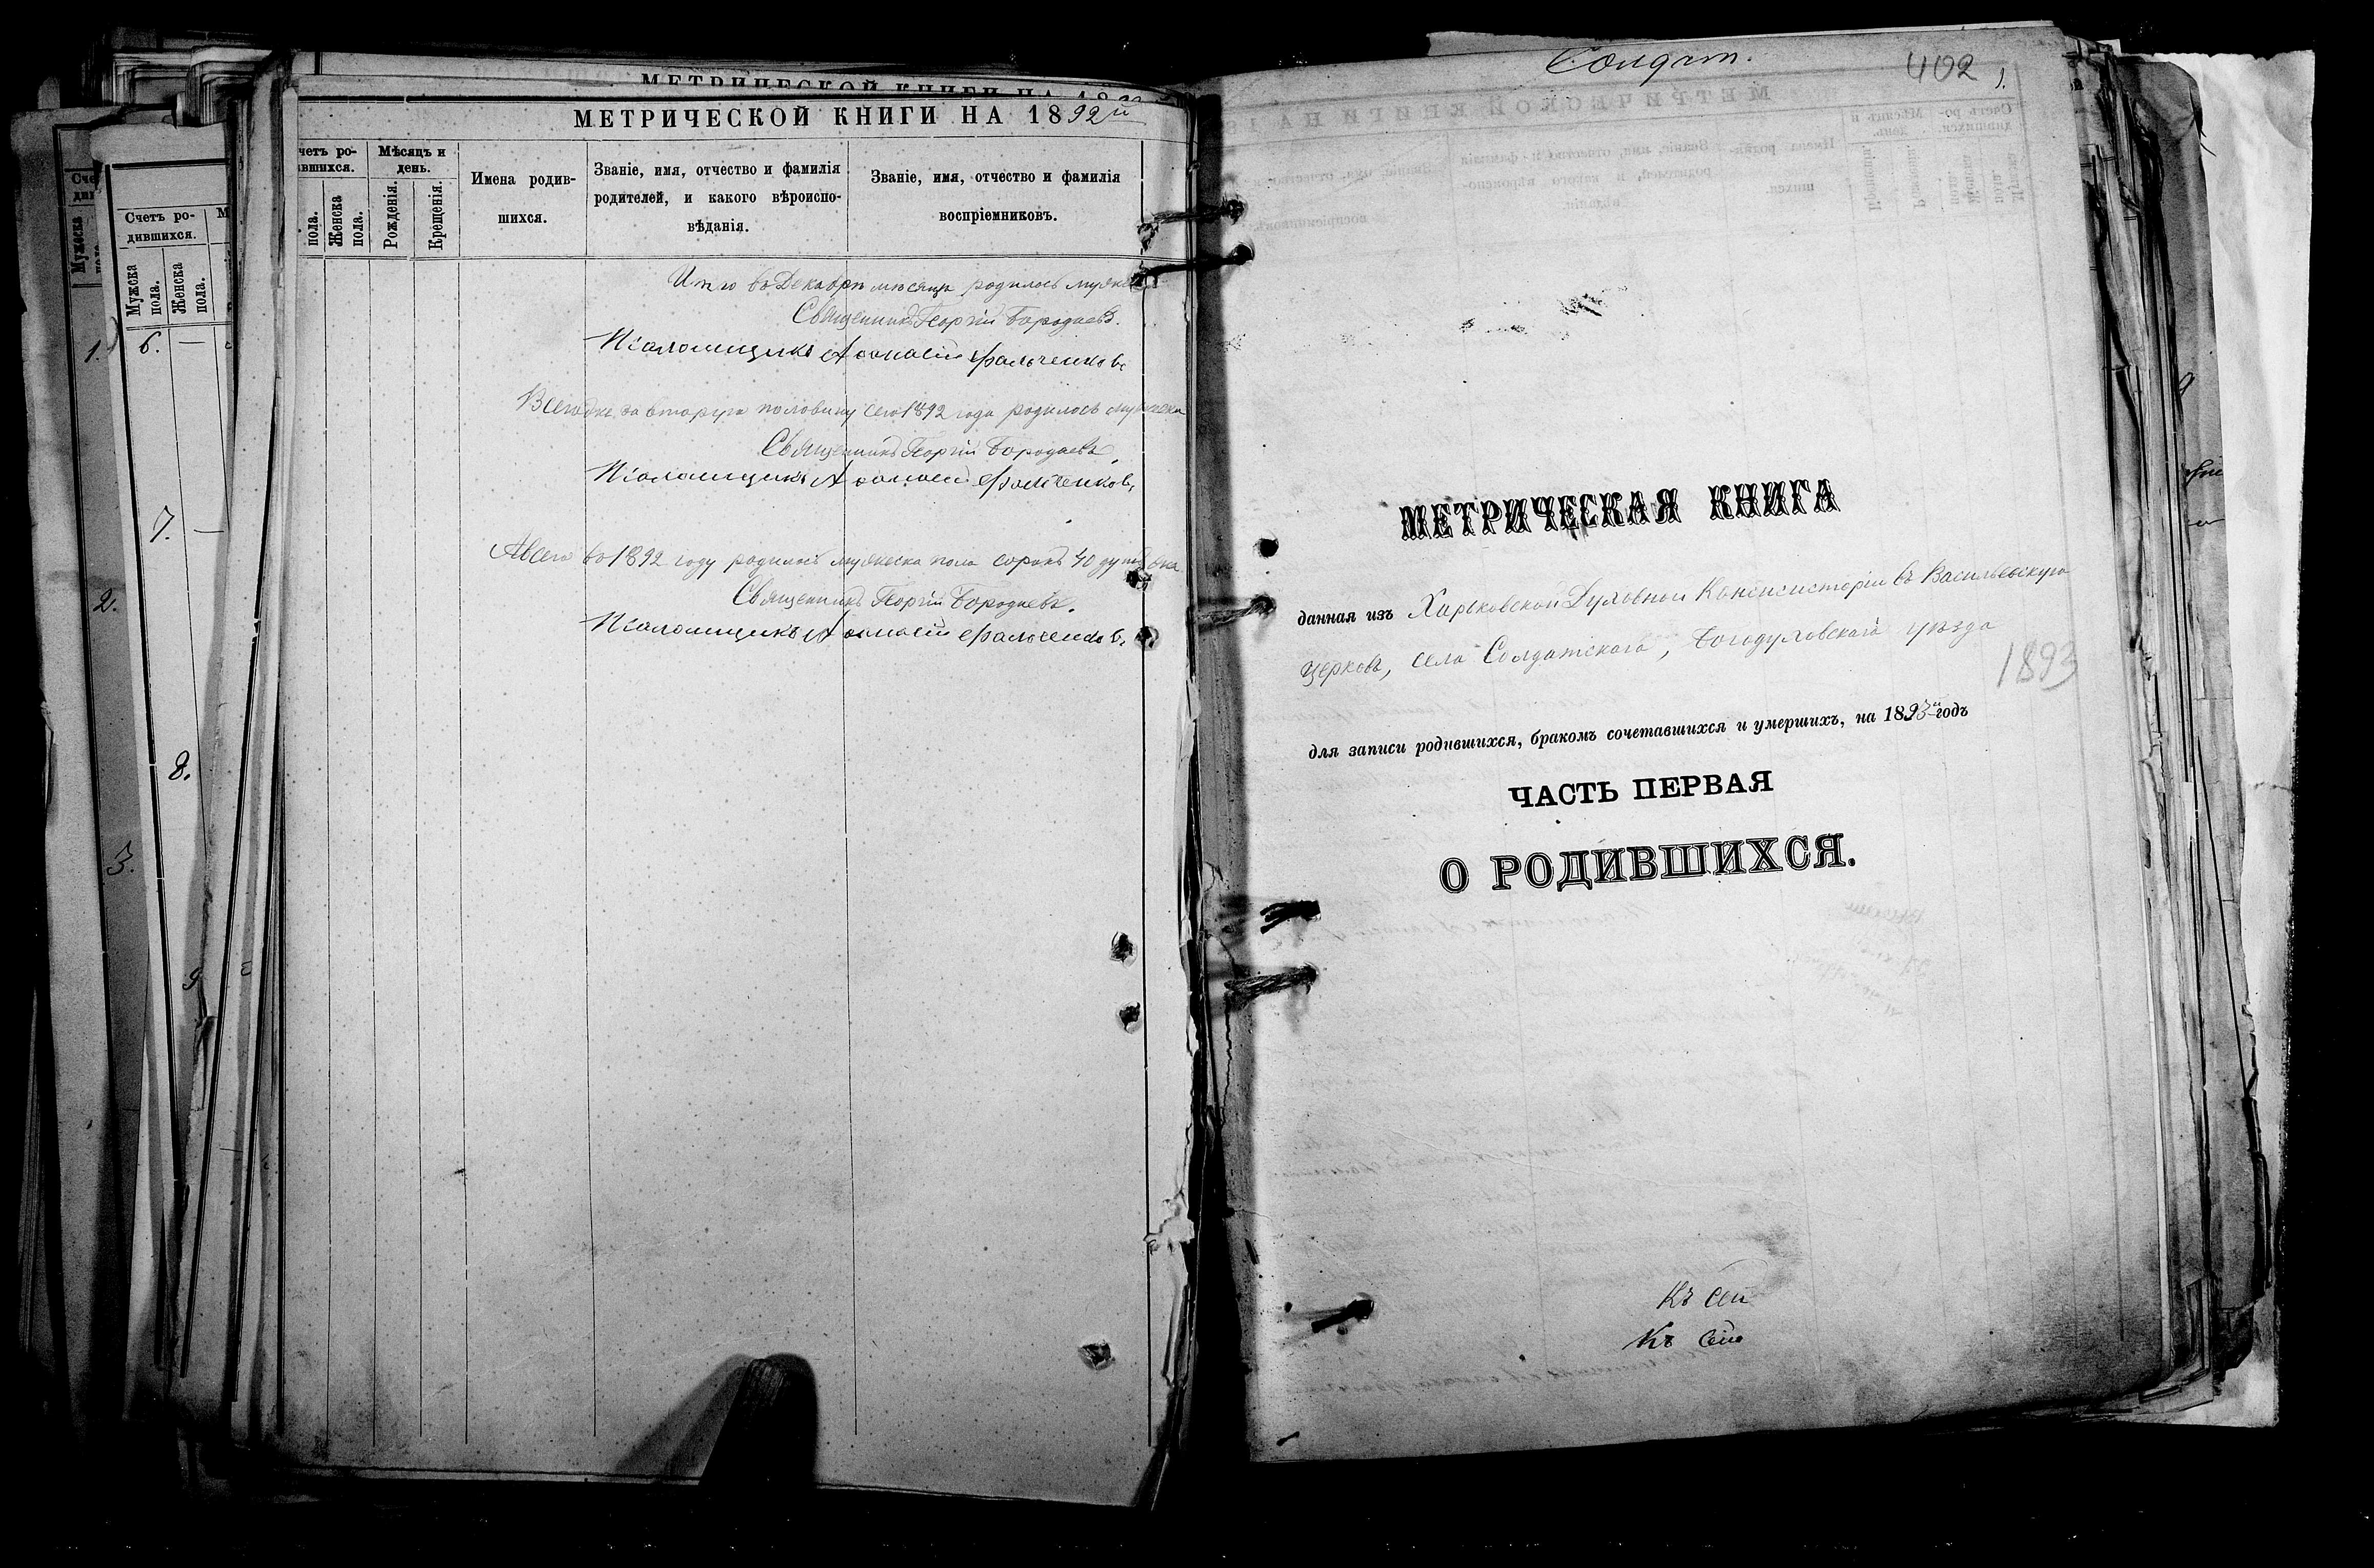 МЕТРИЧЕСКОЙ КНИГИ НА 18
МЕТРИЧЕСКОЙ КНИГИ НА 1892й
четъ ро-
ившихся.
пола.
Женска
пола.
Мѣсяцъ и
день.
Рожденія.
Крещенія.
Имена родив-
шихся.
Званіе, имя, отчество и фамилія
родителей, и какого вѣроиспо-
вѣданія.
Званіе, имя, отчество и фамилія
воспріемниковъ.
Счетъ ро-
дившихся.
Мужеска
пола.
Женска
пола.
Мужеска
1.
6. —
7. —
8.
9
2.
3.
Итого въ Декабрѣ мѣсяцѣ родилось мужеска
Священникъ Георгій Бородаевъ.
Псаломщикъ Аѳанасій Фальченковъ
за вторую половину сего 1892 года родилось мужеска
Священникъ Георгій Бородаевъ
Псаломщикъ Аѳанасій Фальченковъ
А всего въ 1892 году родилось мужеска пола сорокъ 40 душъ
Священникъ Георгій Бородаевъ.
Псаломщикъ Аѳанасій Фальченковъ
Солдат.
402
МЕТРИЧЕСКАЯ КНИГА
данная изъ Харьковской Духовной Консисторіи въ Васильевскую
церковь, села Солдатскаго, Богодуховскаго уѣзда
1893
для записи родившихся, бракомъ сочетавшихся и умершихъ, на 1893й годъ
ЧАСТЬ ПЕРВАЯ
О РОДИВШИХСЯ.
Къ сей
Къ сей